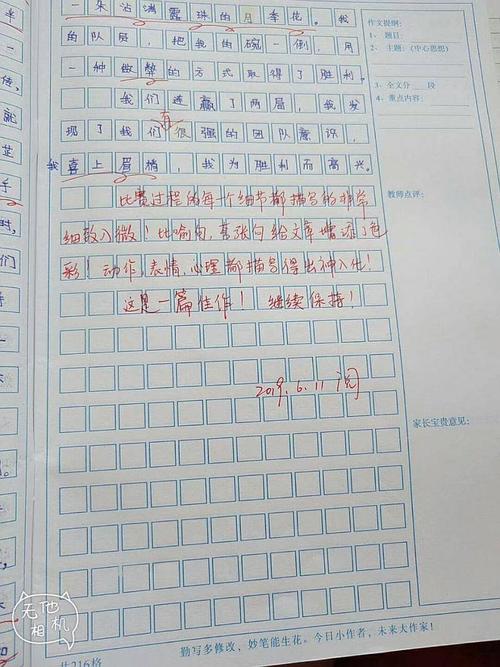 一朵沾满露珠的月季花。我
的队员，把我的碗一倒，用
一种做弊的方式取得了胜利。
我们连赢了两局，我发
现了我们有很强的团队意识，
我喜上眉梢，我为胜利而高兴。
比赛过程的每一个细节都描写的非常
细致入微！比喻句、夸张句给文章增添了色
彩！动作、表情、心理都描写得出神入化！
这是一篇佳作！继续保持！
2019.6.11 阅
作文提纲：
1、题目：
2、主题：（中心思想）
3、全文分 段
4、重点内容：
教师点评：
家长宝贵意见：
手
时，
们
无他
相机
共216格
勤写多修改，妙笔能生花。今日小作者，未来大作家！